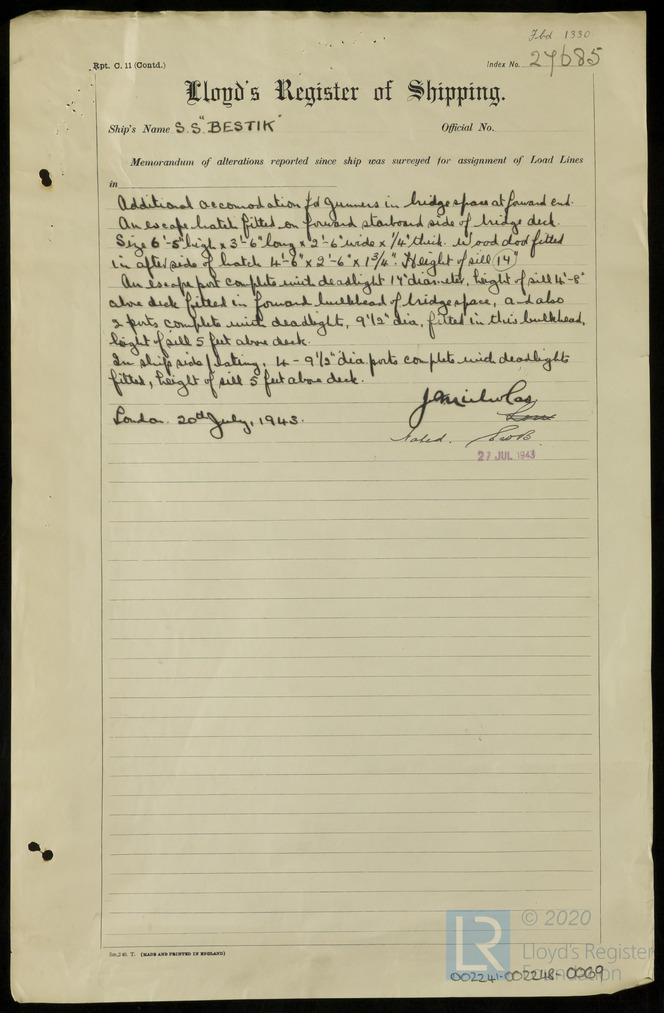 Fbd 1330
Rpt. C. 11 (Contd.)
Index No. 27685
Lloyd's Register of Shipping.
Ship's Name S.S "BESTIK"
Official No.
Memorandum of alterations reported since ship was surveyed for assignment of Load Lines
in
Additional accomodation for gunners in bridge space at forward end.
An escape hatch fitted on forward starboard side of bridge deck.
Size 6'-5" high x 3'-6" long x 2'-6" wide x 1/4" thick. Wood door fitted
in after side of hatch 4'-6" x 2'-6" x 1 3/4". Height of sill 14"
An escape port complete with deadlight 14" diameter, height of sill 4'-8"
above deck fitted in forward bulkhead of bridge space, and also
2 ports complete with deadlight, 9 1/2" dia. fitted in this bulkhead,
height of sill 5 feet above deck.
In ship side plating, 4 - 9 1/2" dia ports complete with deadlights
fitted, height of sill 5 feet above deck.
London. 20th July, 1943.
Noted.
27 JUL 1943
(MADE AND PRINTED IN ENGLAND)
LR © 2020
Lloyd's Register
Foundation
002241-002248-0039